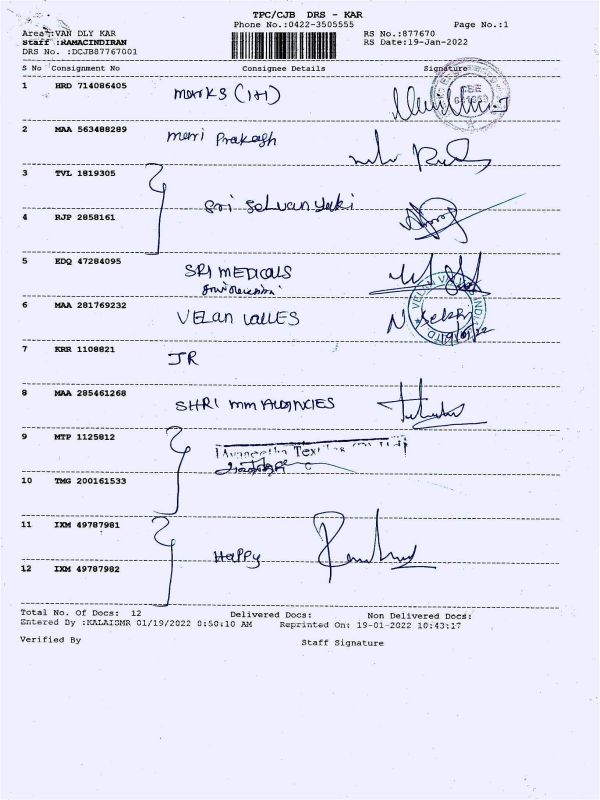 TPC/CJB DRS - KAR
Phone No.:0422-3505555 Page No.:1
Area :VAN DLY KAR RS No.:877670
Staff :RAMACINDIRAN RS Date:19-Jan-2022
DRS No. :DCJB87767001
S No Consignment No Consignee Details Signature
1 HRD 714086405
2 MAA 563488289 mani Prakash
3 TVL 1819305
Sri Selvanayaki
4 RJP 2858161
5 EDQ 47284095 SRI MEDICALS
6 MAA 281769232 VELAN VALLES
7 KRR 1108821 JR
8 MAA 285461268 SHRI MM AUGNCIES
9 MTP 1125812
Textiles
10 TMG 200161533
11 IXM 49787981
Happy
12 IXM 49787982
Total No. Of Docs: 12 Delivered Docs: Non Delivered Docs:
Entered By :KALAISMR 01/19/2022 0:50:10 AM Reprinted On: 19-01-2022 10:43:17
Verified By Staff Signature